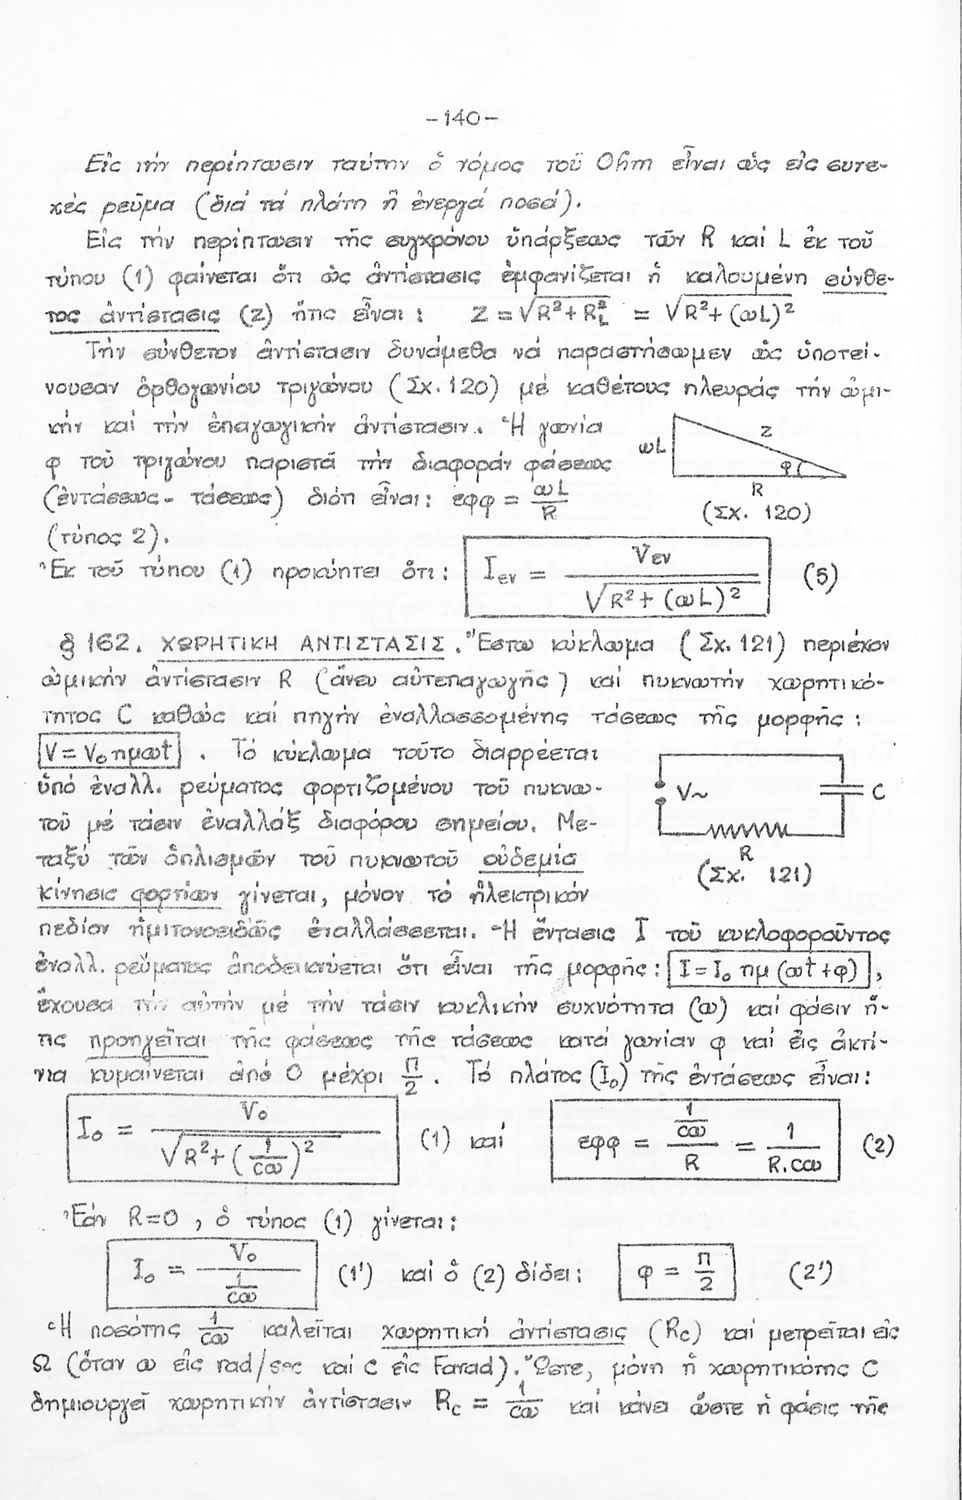 -140-
Εἰς τήν περίπτωσιν ταύτην ὁ νόμος τοῦ Ohm εἶναι ὡς εἰς συνε-
χές ρεῦμα (διά τά πλάτη ἤ ἐνεργά ποσά).
Εἰς τήν περίπτωσιν τῆς συγχρόνου ὑπάρξεως τῶν R καί L ἐκ τοῦ
τύπου (1) φαίνεται ὅτι ὡς ἀντίστασις ἐμφανίζεται ἡ καλουμένη σύνθε-
τος ἀντίστασις (Z) ἥτις εἶναι : Z = √R²+R_L² = √R²+(ωL)²
Τήν σύνθετον ἀντίστασιν δυνάμεθα νά παραστήσωμεν ὡς ὑποτεί-
νουσαν ὀρθογωνίου τριγώνου (Σχ. 120) μέ καθέτους πλευράς τήν ὠμι-
κήν καί τήν ἐπαγωγικήν ἀντίστασιν. Ἡ γωνία
φ τοῦ τριγώνου παριστᾶ τήν διαφοράν φάσεως
(ἐντάσεως - τάσεως) διότι εἶναι: εφφ = ωL/R
(τύπος 2).
ωL Z φ
R
(Σχ. 120)
Ἐκ τοῦ τύπου (1) προκύπτει ὅτι : I_εν = V_εν / √R²+(ωL)² (5)
§ 162. ΧΩΡΗΤΙΚΗ ΑΝΤΙΣΤΑΣΙΣ. Ἔστω κύκλωμα (Σχ. 121) περιέχον
ὠμικήν ἀντίστασιν R (ἄνευ αὐτεπαγωγῆς) καί πυκνωτήν χωρητικό-
τητος C καθώς καί πηγήν ἐναλλασσομένης τάσεως τῆς μορφῆς :
V = V₀ ημωt . Τό κύκλωμα τοῦτο διαρρέεται
ὑπό ἐναλλ. ρεύματος φορτιζομένου τοῦ πυκνω-
τοῦ μέ τάσιν ἐναλλάξ διαφόρου σημείου. Με-
ταξύ τῶν ὁπλισμῶν τοῦ πυκνωτοῦ οὐδεμία
κίνησις φορτίων γίνεται, μόνον τό ἠλεκτρικόν
V~ C
R
(Σχ. 121)
πεδίον ἡμιτονοειδῶς ἐναλλάσσεται. Ἡ ἔντασις I τοῦ κυκλοφοροῦντος
ἐναλλ. ρεύματος ἀποδεικνύεται ὅτι εἶναι τῆς μορφῆς : I = I₀ ημ (ωt+φ) ,
ἔχουσα τήν αὐτήν μέ τήν τάσιν κυκλικήν συχνότητα (ω) καί φάσιν ἥ-
τις προηγεῖται τῆς φάσεως τῆς τάσεως κατά γωνίαν φ καί εἰς ἀκτί-
νια κυμαίνεται ἀπό 0 μέχρι π/2 . Τό πλάτος (I₀) τῆς ἐντάσεως εἶναι :
I₀ = V₀ / √R²+(1/Cω)² (1) καί εφφ = (1/Cω)/R = 1/R.Cω (2)
Ἐάν R=0 , ὁ τύπος (1) γίνεται :
I₀ = V₀ / (1/Cω) (1') καί ὁ (2) δίδει : φ = π/2 (2')
Ἡ ποσότης 1/Cω καλεῖται χωρητική ἀντίστασις (R_C) καί μετρεῖται εἰς
Ω (ὅταν ω εἰς rad/sec καί C εἰς Farad). Ὥστε, μόνη ἡ χωρητικότης C
δημιουργεῖ χωρητικήν ἀντίστασιν R_C = 1/Cω καί κάνει ὥστε ἡ φάσις τῆς